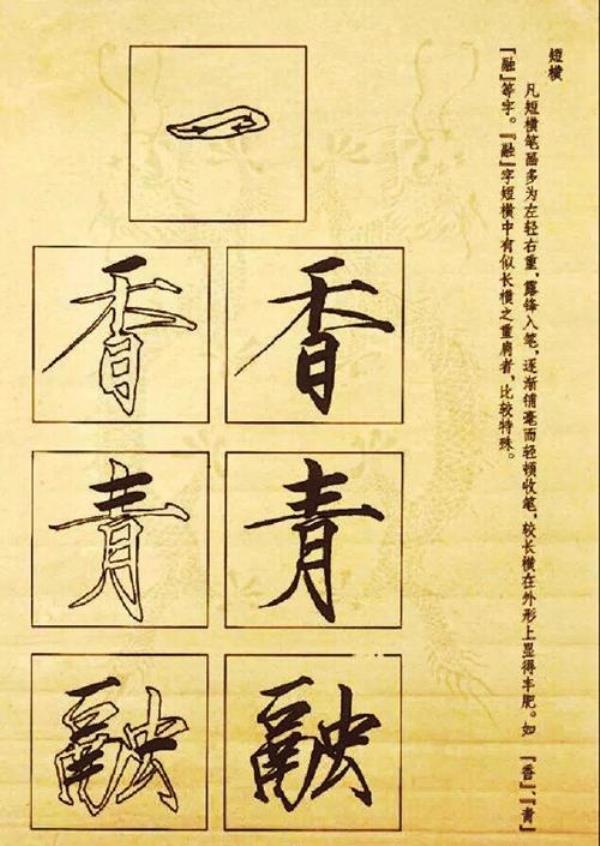 短横
凡短横笔画多为左轻右重，露锋入笔，逐渐铺毫而轻顿收笔，较长横在外形上显得丰肥。如『香』、『青』
『融』等字。『融』字短横中有似长横之重肩者，比较特殊。
一
香 香
青 青
融 融